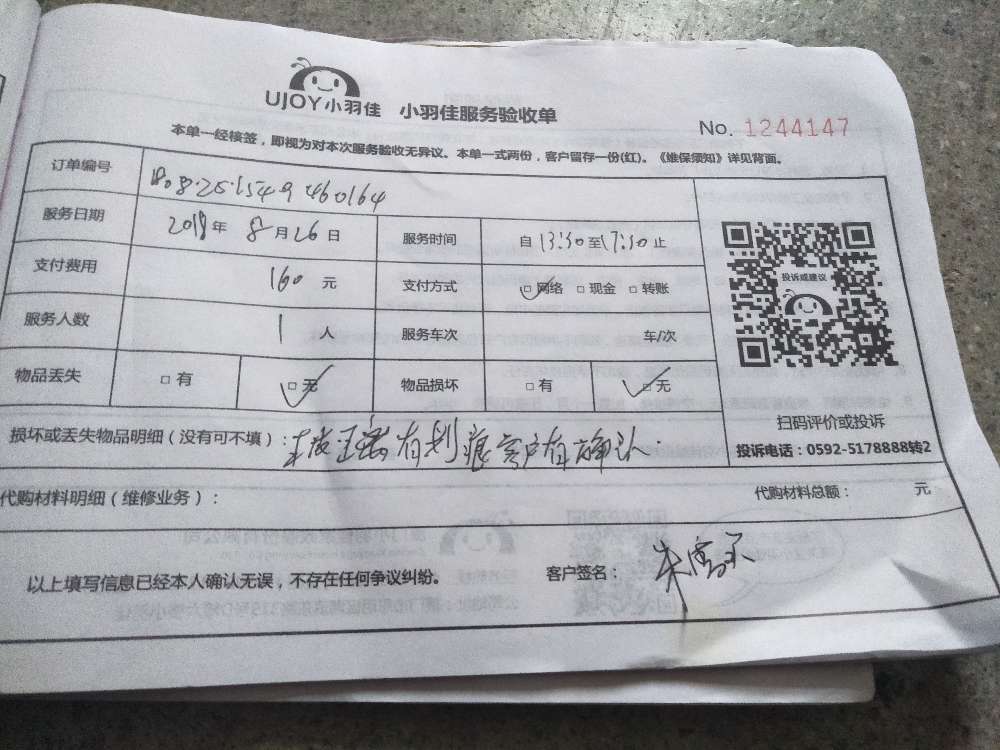 UJOY小羽佳 小羽佳服务验收单
No. 1244147
本单一经核签，即视为对本次服务验收无异议。本单一式两份，客户留存一份(红)。《维保须知》详见背面。
订单编号 1808251549460164
服务日期 2018年 8月26日 服务时间 自13:30至17:30止
支付费用 160 元 支付方式 网络 现金 转账
投诉或建议
服务人数 1 人 服务车次 车/次
物品丢失 有 无 物品损坏 有 无
扫码评价或投诉
投诉电话：0592-5178888转2
损坏或丢失物品明细（没有可不填）： 有划痕客户有确认.
代购材料明细（维修业务）： 代购材料总额： 元
以上填写信息已经本人确认无误，不存在任何争议纠纷。 客户签名：